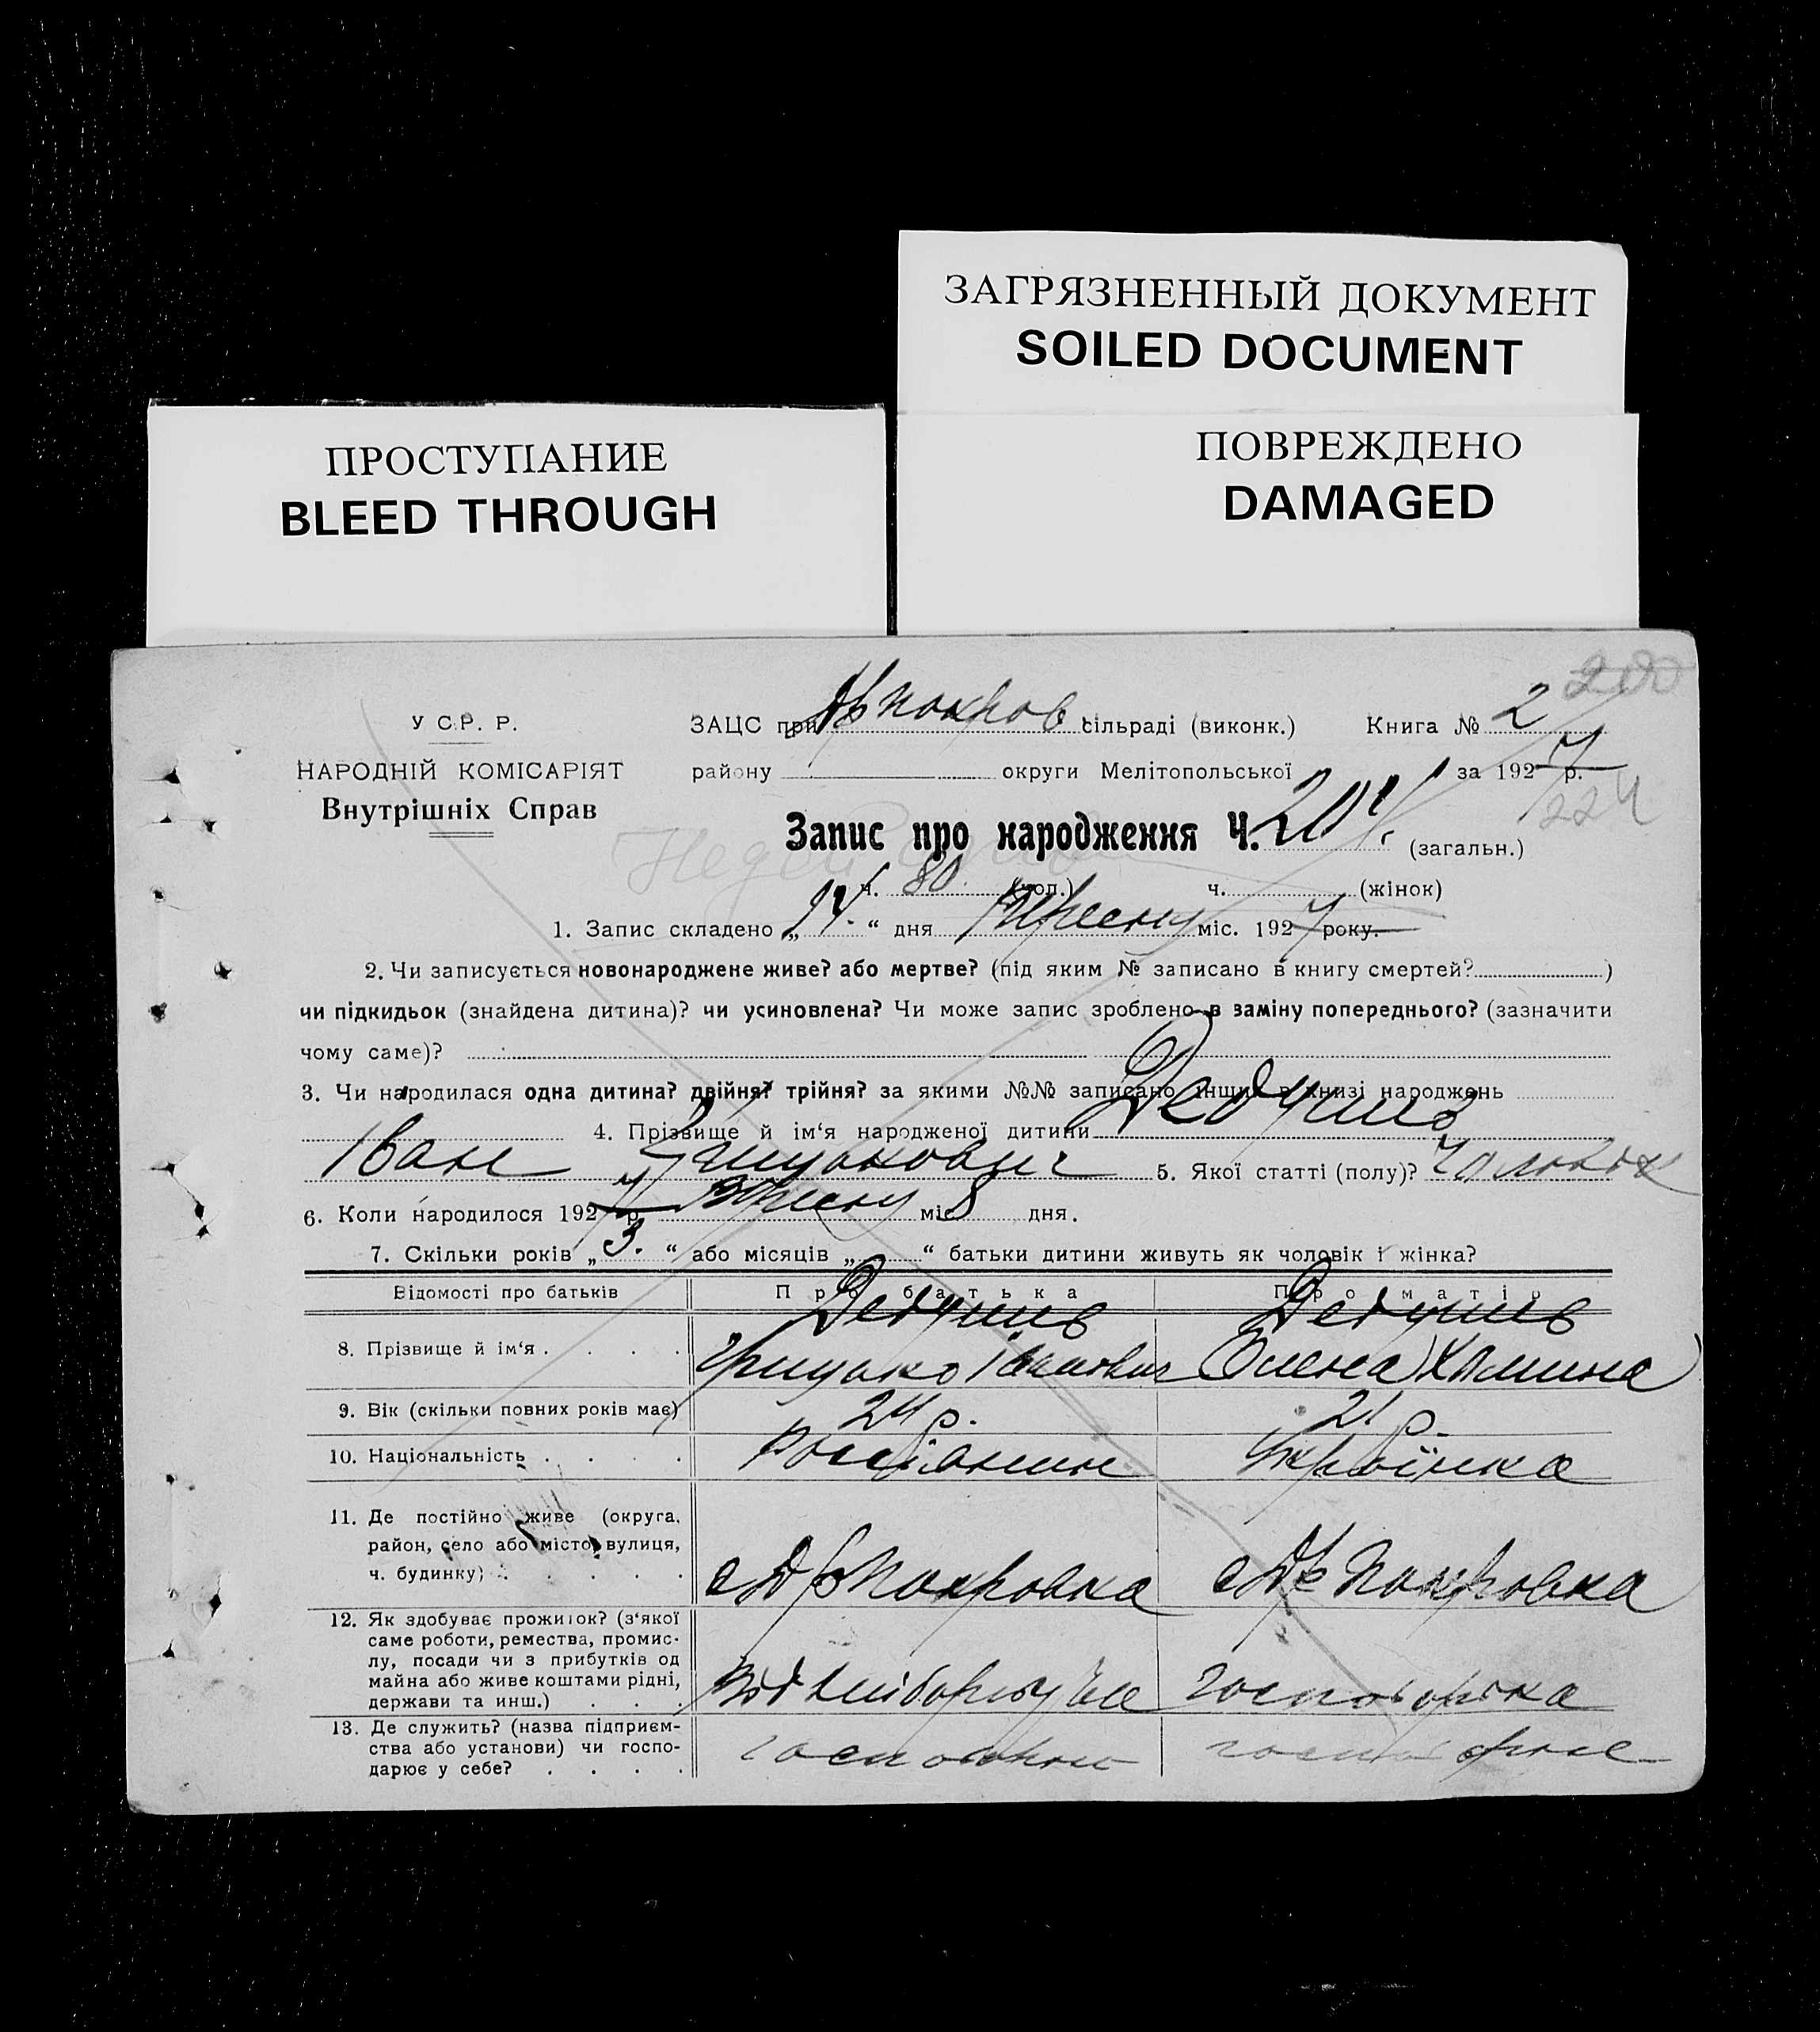 ЗАГРЯЗНЕННЫЙ ДОКУМЕНТ
SOILED DOCUMENT
ПРОСТУПАНИЕ
BLEED THROUGH
ПОВРЕЖДЕНО
DAMAGED
200
У С.Р. Р.
ЗАЦС при Покров сільраді (виконк.) Книга № 2
НАРОДНІЙ КОМІСАРІЯТ
району округи Мелітопольської за 1927 р.
Внутрішніх Справ
224
Запис про народження Ч. 204. (загальн.)
ч. 80 (чол.) ч. (жінок)
1. Запис складено „14." дня Вресню міс. 1927 року.
2. Чи записується новонароджене живе? або мертве? (під яким № записано в книгу смертей? )
чи підкидьок (знайдена дитина)? чи усиновлена? Чи може запис зроблено в заміну попереднього? (зазначити
чому саме)?
3. Чи народилася одна дитина? двійня? трійня? за якими №№ записано інших в книзі народжень
4. Прізвище й ім'я народженої дитини Дедушив
Іван Грицькович 5. Якої статті (полу)? Чоловік
6. Коли народилося 1927 р. Вресню міс 8 дня.
7. Скільки років „3." або місяців „ " батьки дитини живуть як чоловік і жінка?
Відомості про батьків Про батька Про матір
8. Прізвище й ім'я . . . . Дедушив Грицько Іванович Дедушив Олена Хомина
9. Вік (скільки повних років має) 24 р. 21 р.
10. Національність . . . . Россіянин Українка
11. Де постійно живе (округа, район, село або місто, вулиця, ч. будинку) . . . . с Покровка с Покровка
12. Як здобуває прожиток? (з'якої саме роботи, ремества, промислу, посади чи з прибутків од майна або живе коштами рідні, держави та инш.) . . .
13. Де служить? (назва підприємства або установи) чи господарює у себе? . . . .